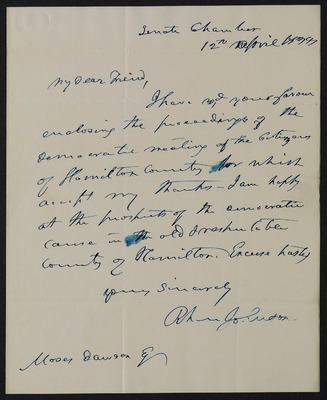 Senate Chamber
12th April
My Dear Friend,
I have recd your favour
enclosing the proceedings of the
Democratic meeting of the Citizens
of Hamilton County for which
accept my thanks - I am happy
at the prospects of the democratic
cause in the old &
County of Hamilton. Excuse haste,
yours sincerely
Rh: M Johnson.
Moses Dawson Eq